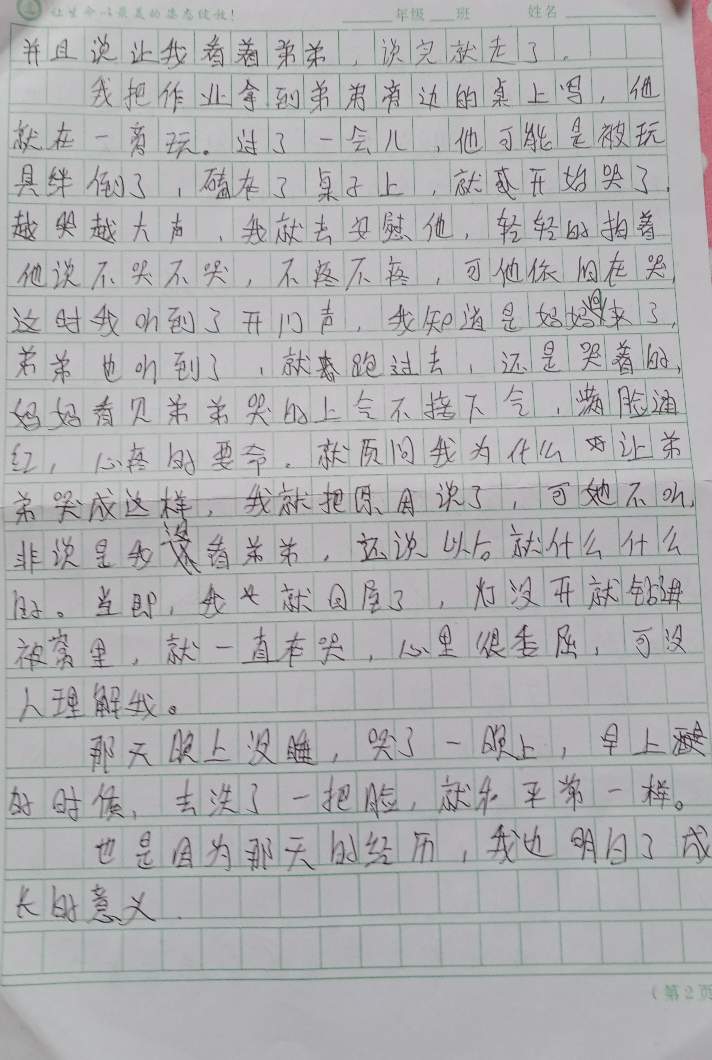 让生命以最美的姿态绽放!
年级 班 姓名
并且说让我看着弟弟，说完就走了.
我把作业拿到弟弟旁边的桌上写，他
就在一旁玩。过了一会儿，他可能是被玩
具绊倒了，磕在了桌子上，就开始哭了.
越哭越大声，我就去安慰他，轻轻的拍着
他说不哭不哭，不疼不疼，可他依旧在哭
这时我听到了开门声，我知道是妈妈回来了，
弟弟也听到了，就跑过去，还是哭着的，
妈妈看见弟弟哭的上气不接下气，满脸通
红，心疼的要命。就质问我为什么让弟
弟哭成这样，我就把原因说了，可她不听，
非说是我没看着弟弟，还说以后就什么什么
的。当即，我就回屋了，灯没开就钻进
被窝里，就一直在哭，心里很委屈，可没
人理解我。
那天晚上没睡，哭了一晚上，早上醒
的时候，去洗了一把脸，就和平常一样。
也是因为那天的经历，我也明白了成
长的意义.
(第2页